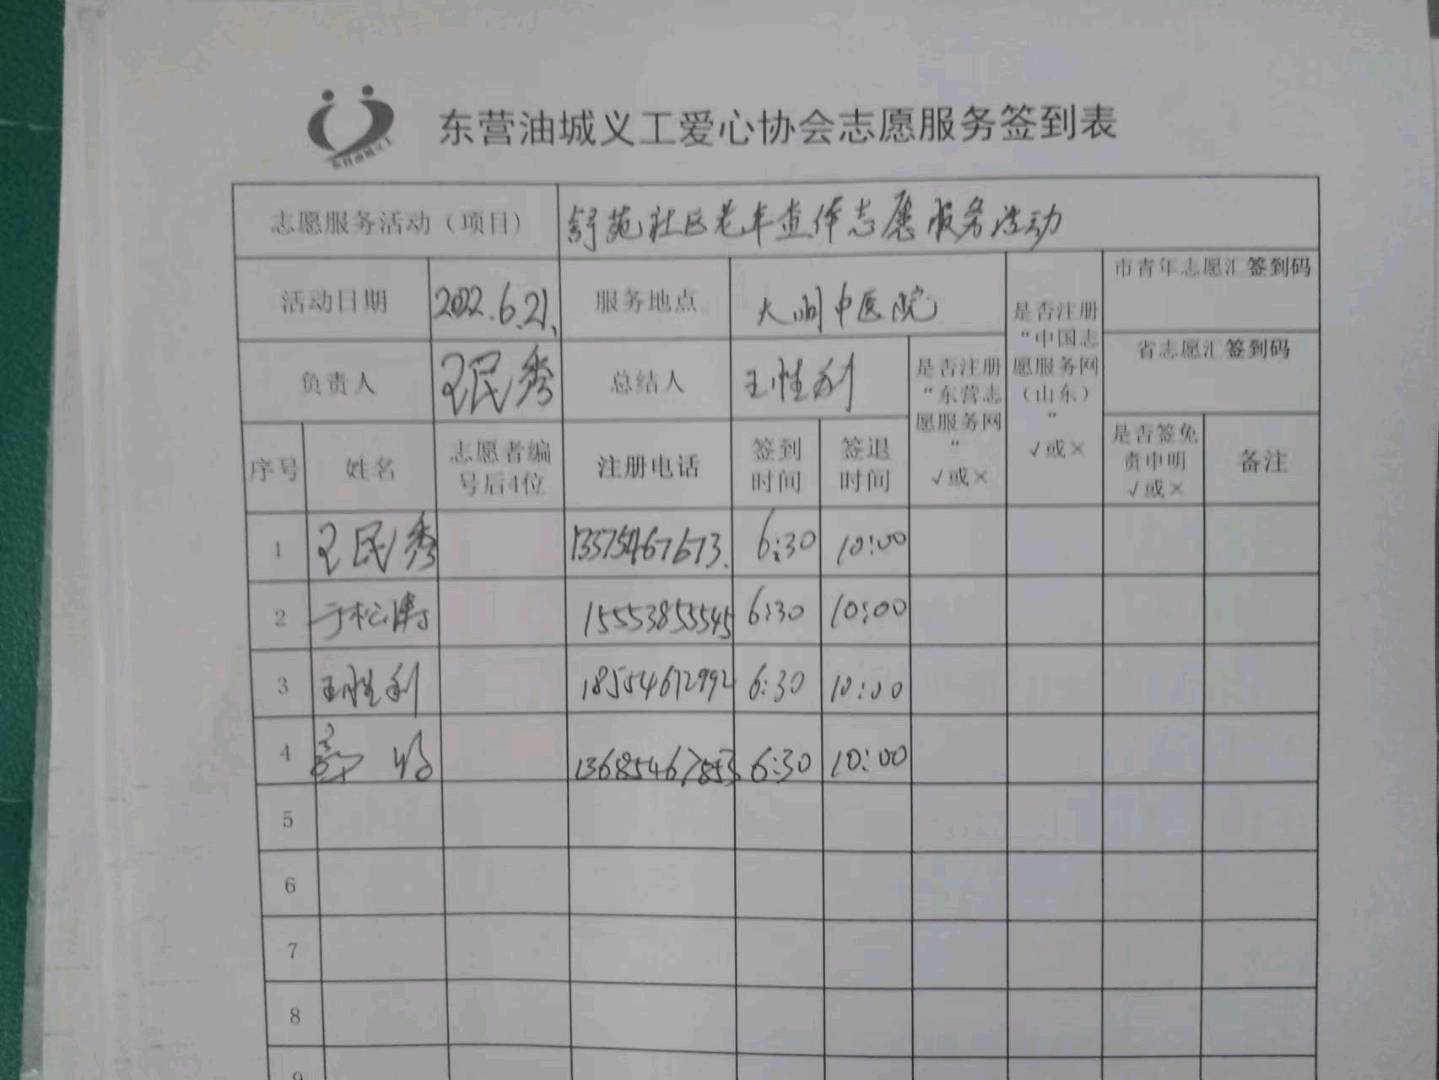 东营油城义工
东营油城义工爱心协会志愿服务签到表
志愿服务活动（项目） 舒苑社区老年查体志愿服务活动
活动日期 2022.6.21. 服务地点 大明中医院 是否注册“中国志愿服务网（山东）” √或× 市青年志愿汇签到码
省志愿汇签到码
负责人 王民秀 总结人 王性利 是否注册“东营志愿服务网” √或×
序号 姓名 志愿者编号后4位 注册电话 签到时间 签退时间 是否签免责申明 √或× 备注
1 王民秀 13375467673. 6:30 10:00
2 于松涛 15553855545 6:30 10:00
3 王性利 18554672992 6:30 10:00
4 13685467853 6:30 10:00
5
6
7
8
9